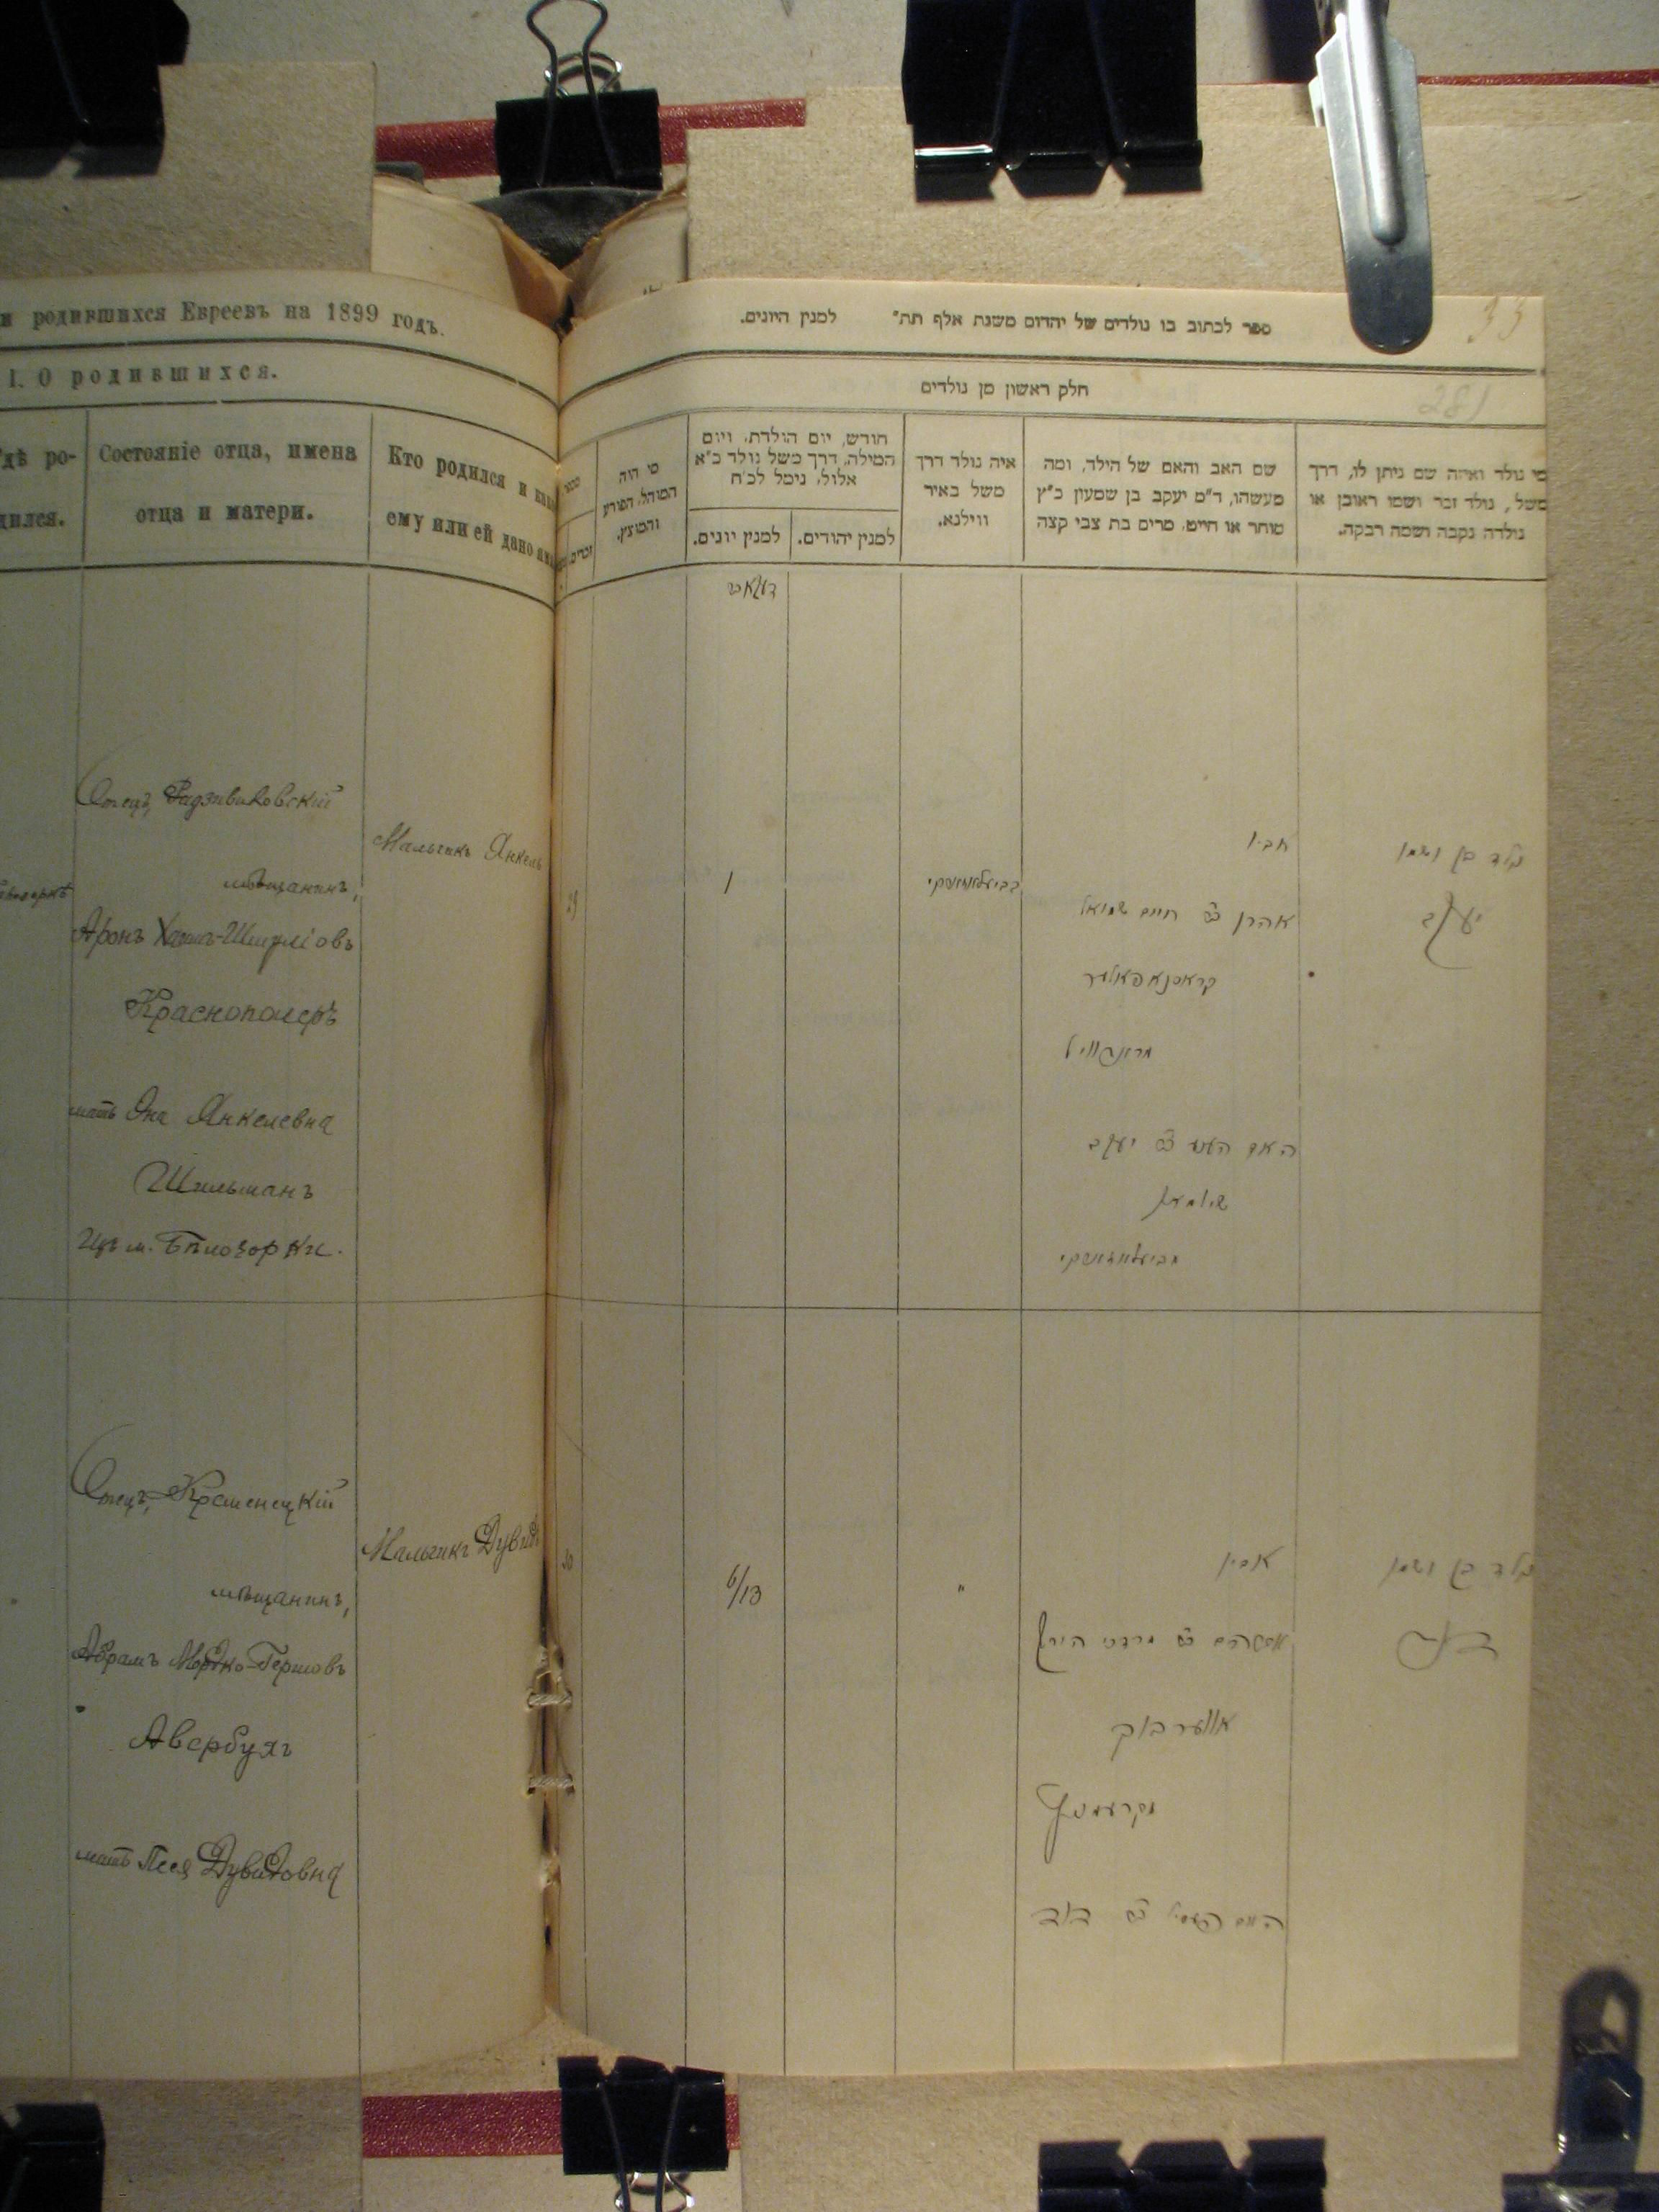 и родившихся Евреевъ на 1899 годъ.
I. О родившихся.
дѣ ро-
дился.
Состояніе отца, имена
отца и матери.
Кто родился и как
ему или ей дано
Отецъ, Радзивиловскій
мѣщанинъ,
Аронъ Хаимъ-Шмулiовъ
Краснополеръ
мать Янкелевна
Шильманъ
Изъ м. Бѣлозорки.
Мальчикъ Янкель
Отецъ, Кременецкій
мѣщанинъ,
Абрамъ Мордко-Гершовъ
Авербухъ
мать Песя Дувидовна
Мальчикъ Дувидъ
33
281
ספר לכתוב בו נולדים של יהדום משנת אלף תת" למנין היונים.
חלק ראשון מן נולדים
מי נולד ואיזה שם ניתן לו, דרך
משל, נולד זכר ושמו ראובן או
נולדה נקבה ושמה רבקה.
שם האב והאם של הילד, ומה
מעשהו, ד"מ יעקב בן שמעון כ"ץ
סוחר או חייט, מרים בת צבי קצה
איה נולד דרך
משל באיר
ווילנא.
חודש, יום הולדת, ויום
המילה, דרך משל נולד כ"א
אלול, נימל לכ"ח
למנין יהודים.
למנין יונים.
מי היה
המוהל, הפורע
והמוצץ.
זכרים.
דעקאבר
נולד בן ושמו
יעקב
אביו
אהרן ב"ר חיים שמואל
קראסנאפאלער
האם בת יעקב
שילמאן
1
29
נולד בן ושמו
דוד
אביו
אברהם ב"ר מרדכי הירש
אווערבוך
מקרעמניץ
האם בת דוד
"
6/13
30